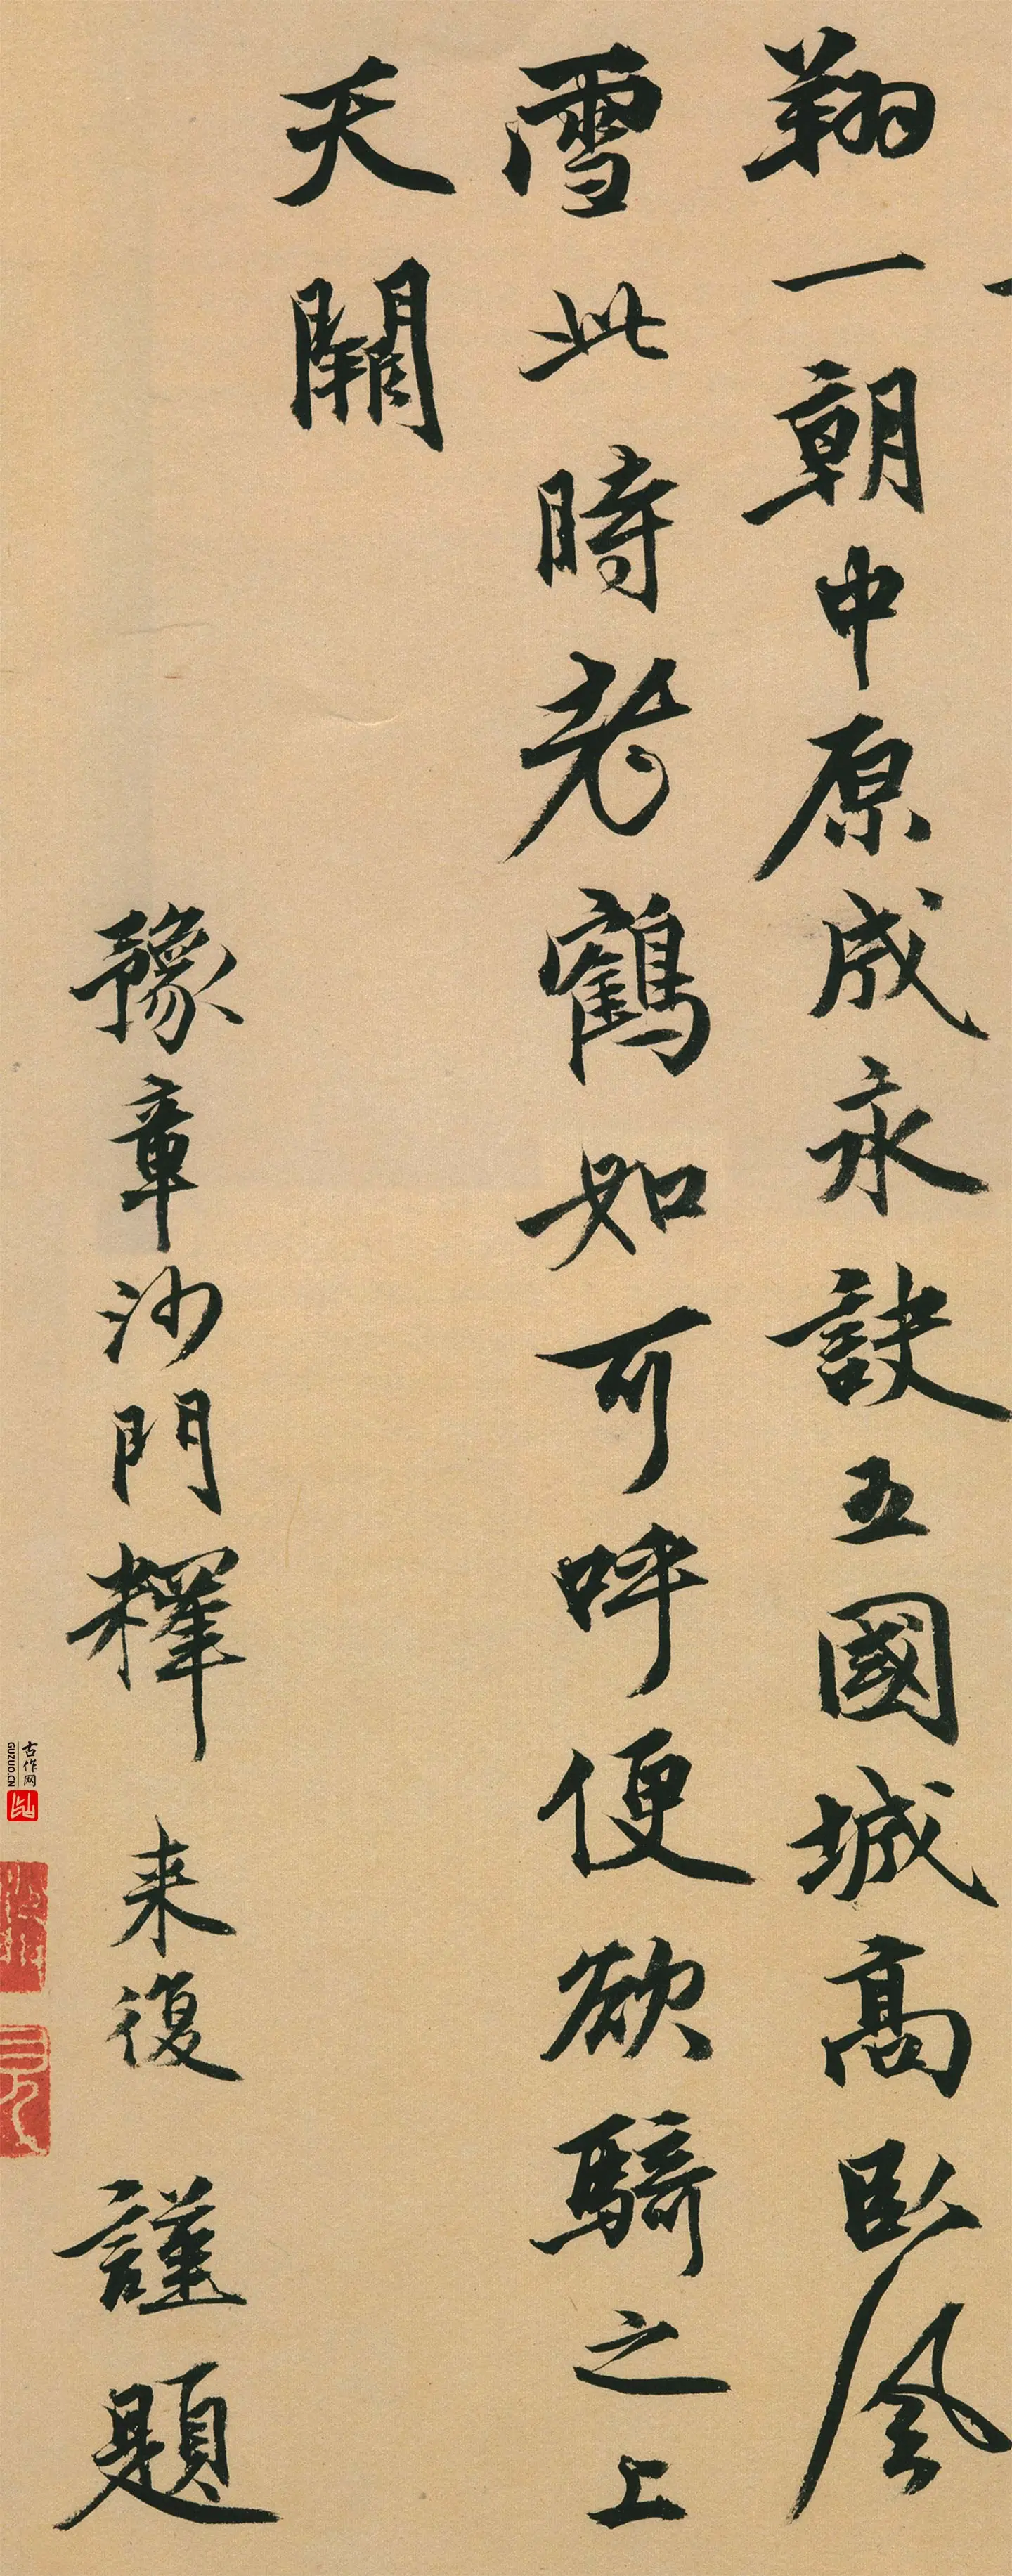 翔一朝中原成永訣五國城高臥風
雪此時老鶴如可呼便欲騎之上
天闕
豫章沙門釋来復謹題
古作网
GUZUO.CN